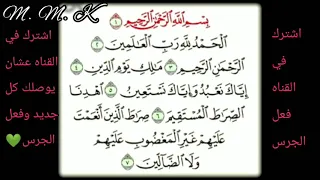 M. M. K
بِسْمِ اللَّهِ الرَّحْمَٰنِ الرَّحِيمِ ١
الْحَمْدُ لِلَّهِ رَبِّ الْعَالَمِينَ ٢
الرَّحْمَٰنِ الرَّحِيمِ ٣ مَالِكِ يَوْمِ الدِّينِ ٤
إِيَّاكَ نَعْبُدُ وَإِيَّاكَ نَسْتَعِينُ ٥ اهْدِنَا
الصِّرَاطَ الْمُسْتَقِيمَ ٦ صِرَاطَ الَّذِينَ أَنْعَمْتَ
عَلَيْهِمْ غَيْرِ الْمَغْضُوبِ عَلَيْهِمْ
وَلَا الضَّالِّينَ ٧
اشترك
في
القناه
فعل
الجرس
اشترك في
القناه عشان
يوصلك كل
جديد وفعل
الجرس💚